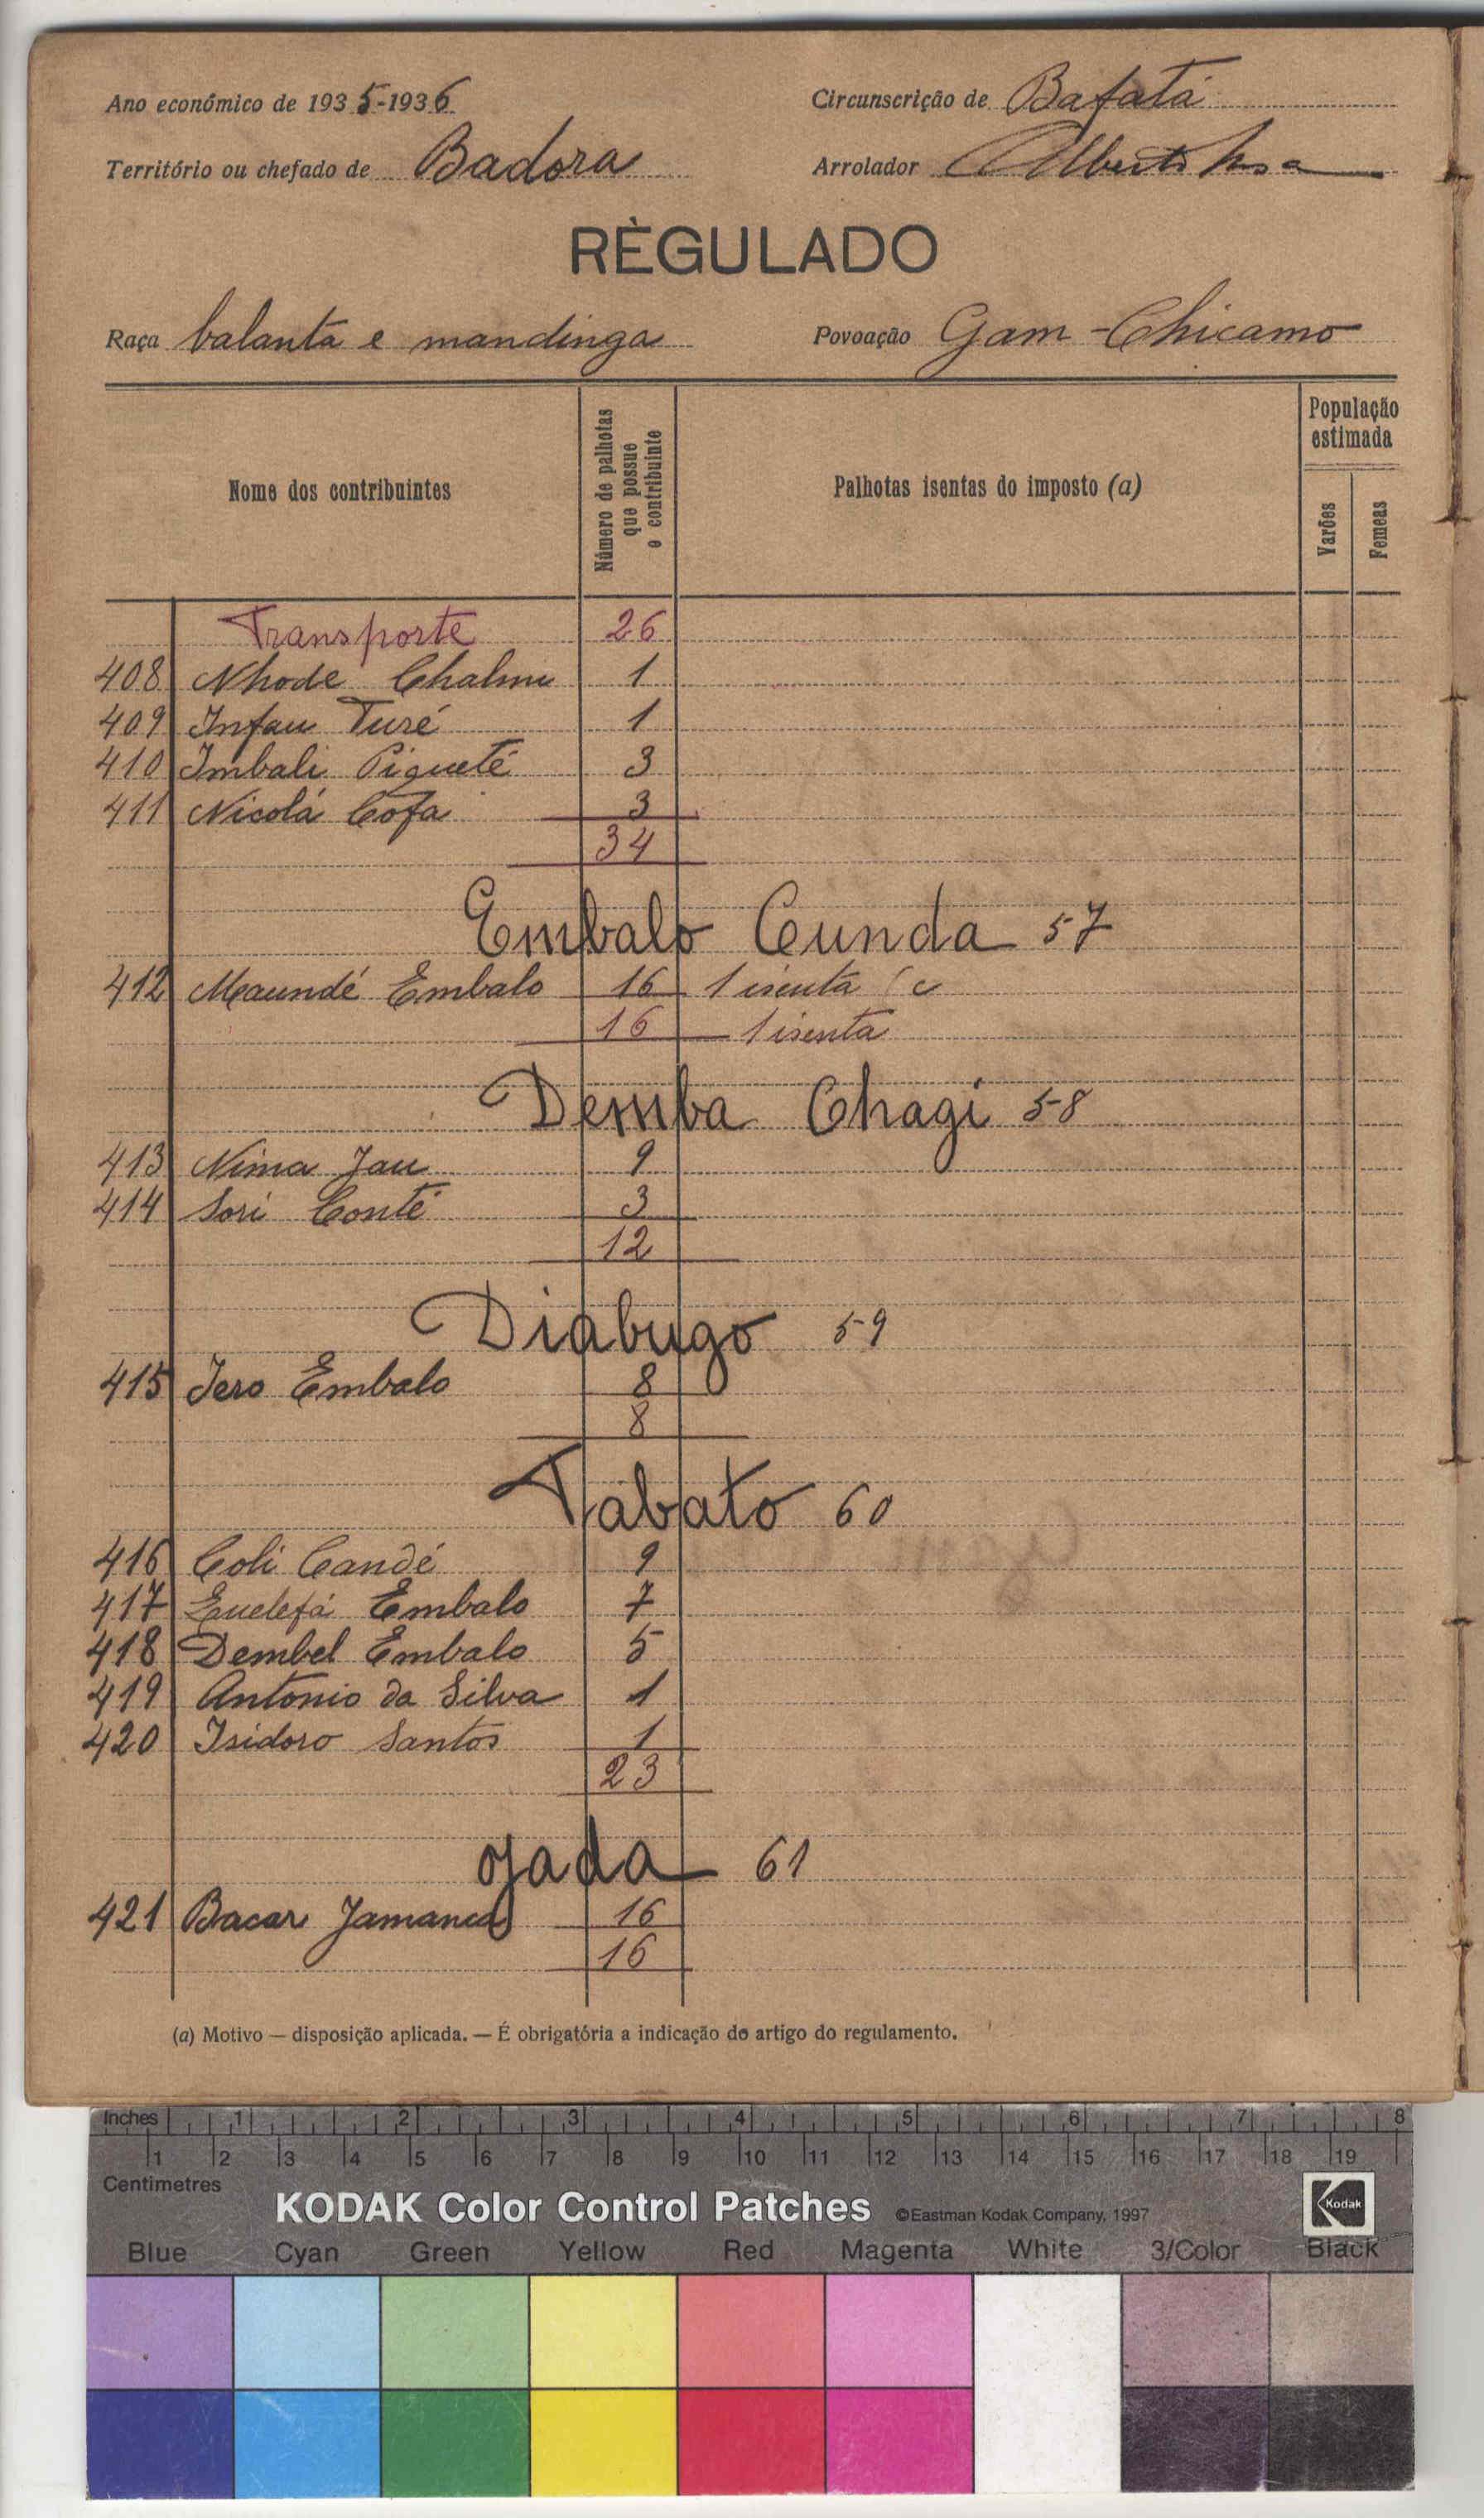 Ano económico de 1935-1936 Circunscrição de Bafatá
Território ou chefado de Badora Arrolador Alberto
RÈGULADO
Raça balanta e mandinga Povoação Gam-Chicamo
Nome dos contribuintes
Número de palhotas
que possue
o contribuinte
Palhotas isentas do imposto (a)
População
estimada
Varões
Femeas
Transporte 26
408 Nhode Chalmi 1
409 Infau Turé 1
410 Imbali Pigueté 3
411 Nicolá Cofa 3
34
Embalo Cunda 57
412 Maundé Embalo 16 1 isenta (c
16 1 isenta
Demba Chagi 58
413 Nima Jau 9
414 Sori Conté 3
12
Diabugo 59
415 Jero Embalo 8
8
Tabato 60
416 Coli Candé 9
417 Embalo 7
418 Dembel Embalo 5
419 Antonio da Silva 1
420 Isidoro Santos 1
23
ojada 61
421 Bacar Jamanca 16
16
(a) Motivo — disposição aplicada. — É obrigatória a indicação do artigo do regulamento.
Inches 1 2 3 4 5 6 7 8
1 2 3 4 5 6 7 8 9 10 11 12 13 14 15 16 17 18 19
Centimetres
KODAK Color Control Patches ©Eastman Kodak Company, 1997 Kodak
Blue Cyan Green Yellow Red Magenta White 3/Color Black